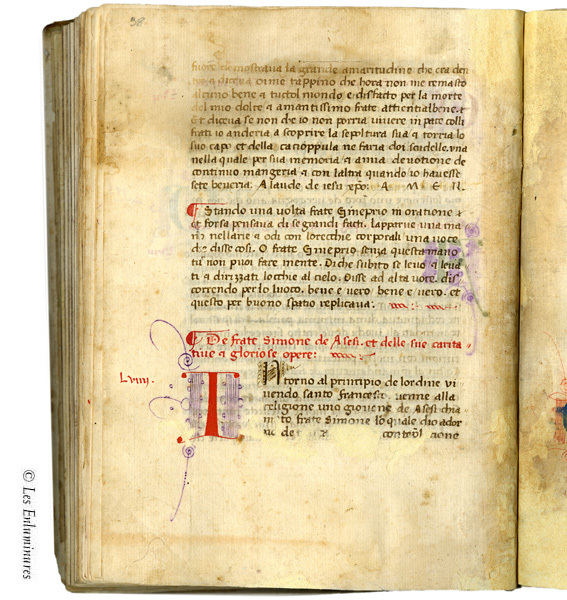 38
fuore demostaua la grande amaritudine che era den
diceua oime tappino che hora non me remasto
alcuno bene & tuctol mondo e disfacto per la morte
del mio dolce & amantissimo frate attientialbene. &
Et diceua se non che io non porria uiuere in pace colli
frati io anderia a scoprire la sepoltura sua & torria lo
suo capo et della cacioppula ne faria doi scudelle. vna
nella quale per sua memoria & a mia deuotione de
continuo mangeria & con laltra quando io hauesse
sete beueria. A laude de iesu xpo. A M E N.
Stando una uolta frate Gineprio in oratione &
et forsa pensaua di se grandi facti. lapparue una ma
in nellarie & odi con lorecchie corporali una uoce
che disse cosi. O frate Gineprio senza questa mano
tu non puoi fare niente. Di che subito se leuo & leua
ti & dirizzati locchie al cielo. Disse ad alta uoce. dis
correndo per lo luoco. bene e uero bene e uero. et
questo per buono spatio replicaua.
De frate Simone de Asesi. et delle sue carita
tiue & gloriose opere:
Lviiii.
I
N torno al principio de lordine vi
uendo santo francesco uenne alla
religione uno giouene de Asesi chia
mato frate Simone lo quale dio ador
no de
© Les Enluminures